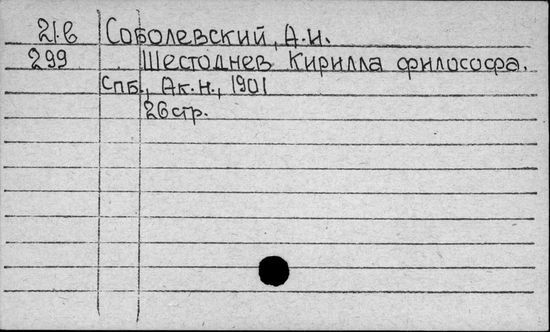 21.в Соболевский, А.И.
299 Шестоднев Кирилла философа.
Спб., Ак.н., 1901
26стр.